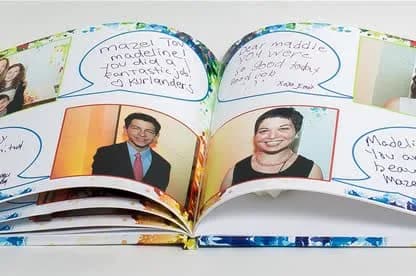 mazel tov
madeline!
you did a
fantastic job
♡ Kurlanders
Dear maddie
you were
so good today
Good job
Madeline
You a
beau
Maz